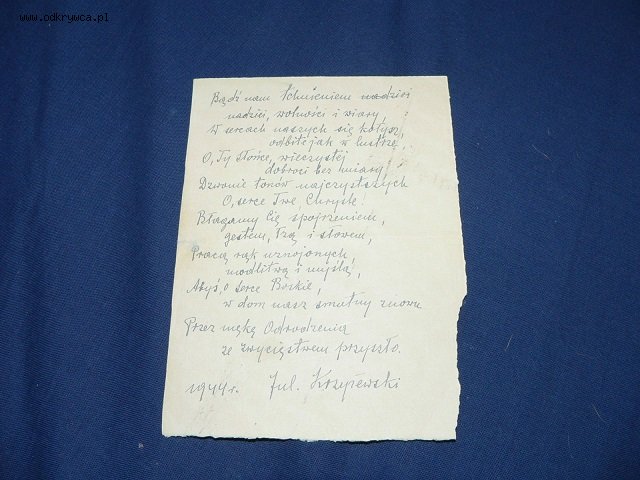 www.odkrywca.pl
Bądź nam tchnieniem nadziei
nadziei, wolności i wiary,
W sercach naszych się kołysz,
odbite jak w lustrze,
O, Ty Słońce, wieczystej
dobroci bez miary,
Dzwonie tonów najczystszych
O, serce Twe Chryste!
Błagamy Cię spojrzeniem,
gestem, łzą i słowem,
Pracą rąk uznojonych,
modlitwą i myślą,
Abyś, o serce Boskie,
w dom nasz smutny znowu
Przez mękę Odrodzenia
ze zwycięstwem przyszło.
1944 r. Jul. Krzyżewski